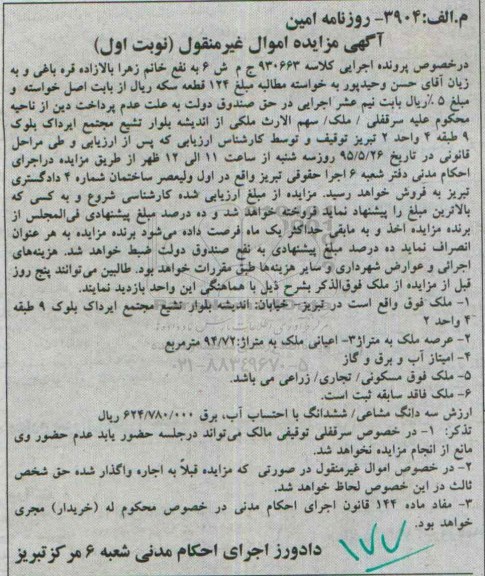 م.الف:۳۹۰۴- روزنامه امین
آگهی مزایده اموال غیرمنقول (نوبت اول)
درخصوص پرونده اجرایی کلاسه ۹۳۰۶۶۳ ج م ش ۶ به نفع خانم زهرا بالازاده قره باغی و به
زیان آقای حسن وحیدپور به خواسته مطالبه مبلغ ۱۲۴ قطعه سکه ریال از بابت اصل خواسته و
مبلغ ۵ ٪ریال بابت نیم عشر اجرایی در حق صندوق دولت به علت عدم پرداخت دین از ناحیه
محکوم علیه سرقفلی / ملک/ سهم الارث ملکی از اندیشه بلوار تشیع مجتمع ایرداک بلوک
۹ طبقه ۴ واحد ۲ تبریز توقیف و توسط کارشناس ارزیابی که پس از ارزیابی و طی مراحل
قانونی در تاریخ ۹۵/۵/۲۶ روزسه شنبه از ساعت ۱۱ الی ۱۲ ظهر از طریق مزایده دراجرای
احکام مدنی دفتر شعبه ۶ اجرا حقوقی تبریز واقع در اول ولیعصر ساختمان شماره ۴ دادگستری
تبریز به فروش خواهد رسید. مزایده از مبلغ ارزیابی شده کارشناسی شروع و به کسی که
بالاترین مبلغ را پیشنهاد نماید فروخته خواهد شد و ده درصد مبلغ پیشنهادی فی‌المجلس از
برنده مزایده اخذ و به مابقی حداکثر یک ماه فرصت داده می‌شود برنده مزایده به هر عنوان
انصراف نماید ده درصد مبلغ پیشنهادی به نفع صندوق دولت ضبط خواهد شد. هزینه‌های
اجرائی و عوارض شهرداری و سایر هزینه‌ها طبق مقررات خواهد بود. طالبین می‌توانند پنج روز
قبل از مزایده از ملک فوق‌الذکر بشرح ذیل با هماهنگی این واحد بازدید نمایند.
۱- ملک فوق واقع است در تبریز- خیابان: اندیشه بلوار تشیع مجتمع ایرداک بلوک ۹ طبقه
۴ واحد ۲
۲- عرصه ملک به متراژ۳- اعیانی ملک به متراژ:۹۴/۷۲ مترمربع
۴- امتیاز آب و برق و گاز
۰۲۱-۸۸۳۴۹۶۷۰-۵
۵- ملک فوق مسکونی/ تجاری/ زراعی می باشد.
۶- ملک فاقد سابقه ثبت است.
ارزش سه دانگ مشاعی/ ششدانگ با احتساب آب، برق ۶۲۴/۷۸۰/۰۰۰ ریال
تذکر: ۱- در خصوص سرقفلی توقیفی مالک می‌تواند درجلسه حضور یابد عدم حضور وی
مانع از انجام مزایده نخواهد شد.
۲- در خصوص اموال غیرمنقول در صورتی که مزایده قبلاً به اجاره واگذار شده حق شخص
ثالث در این خصوص لحاظ خواهد شد.
۳- مفاد ماده ۱۴۴ قانون اجرای احکام مدنی در خصوص محکوم له (خریدار) مجری
خواهد بود.
دادورز اجرای احکام مدنی شعبه ۶ مرکز تبریز
۱۷۷